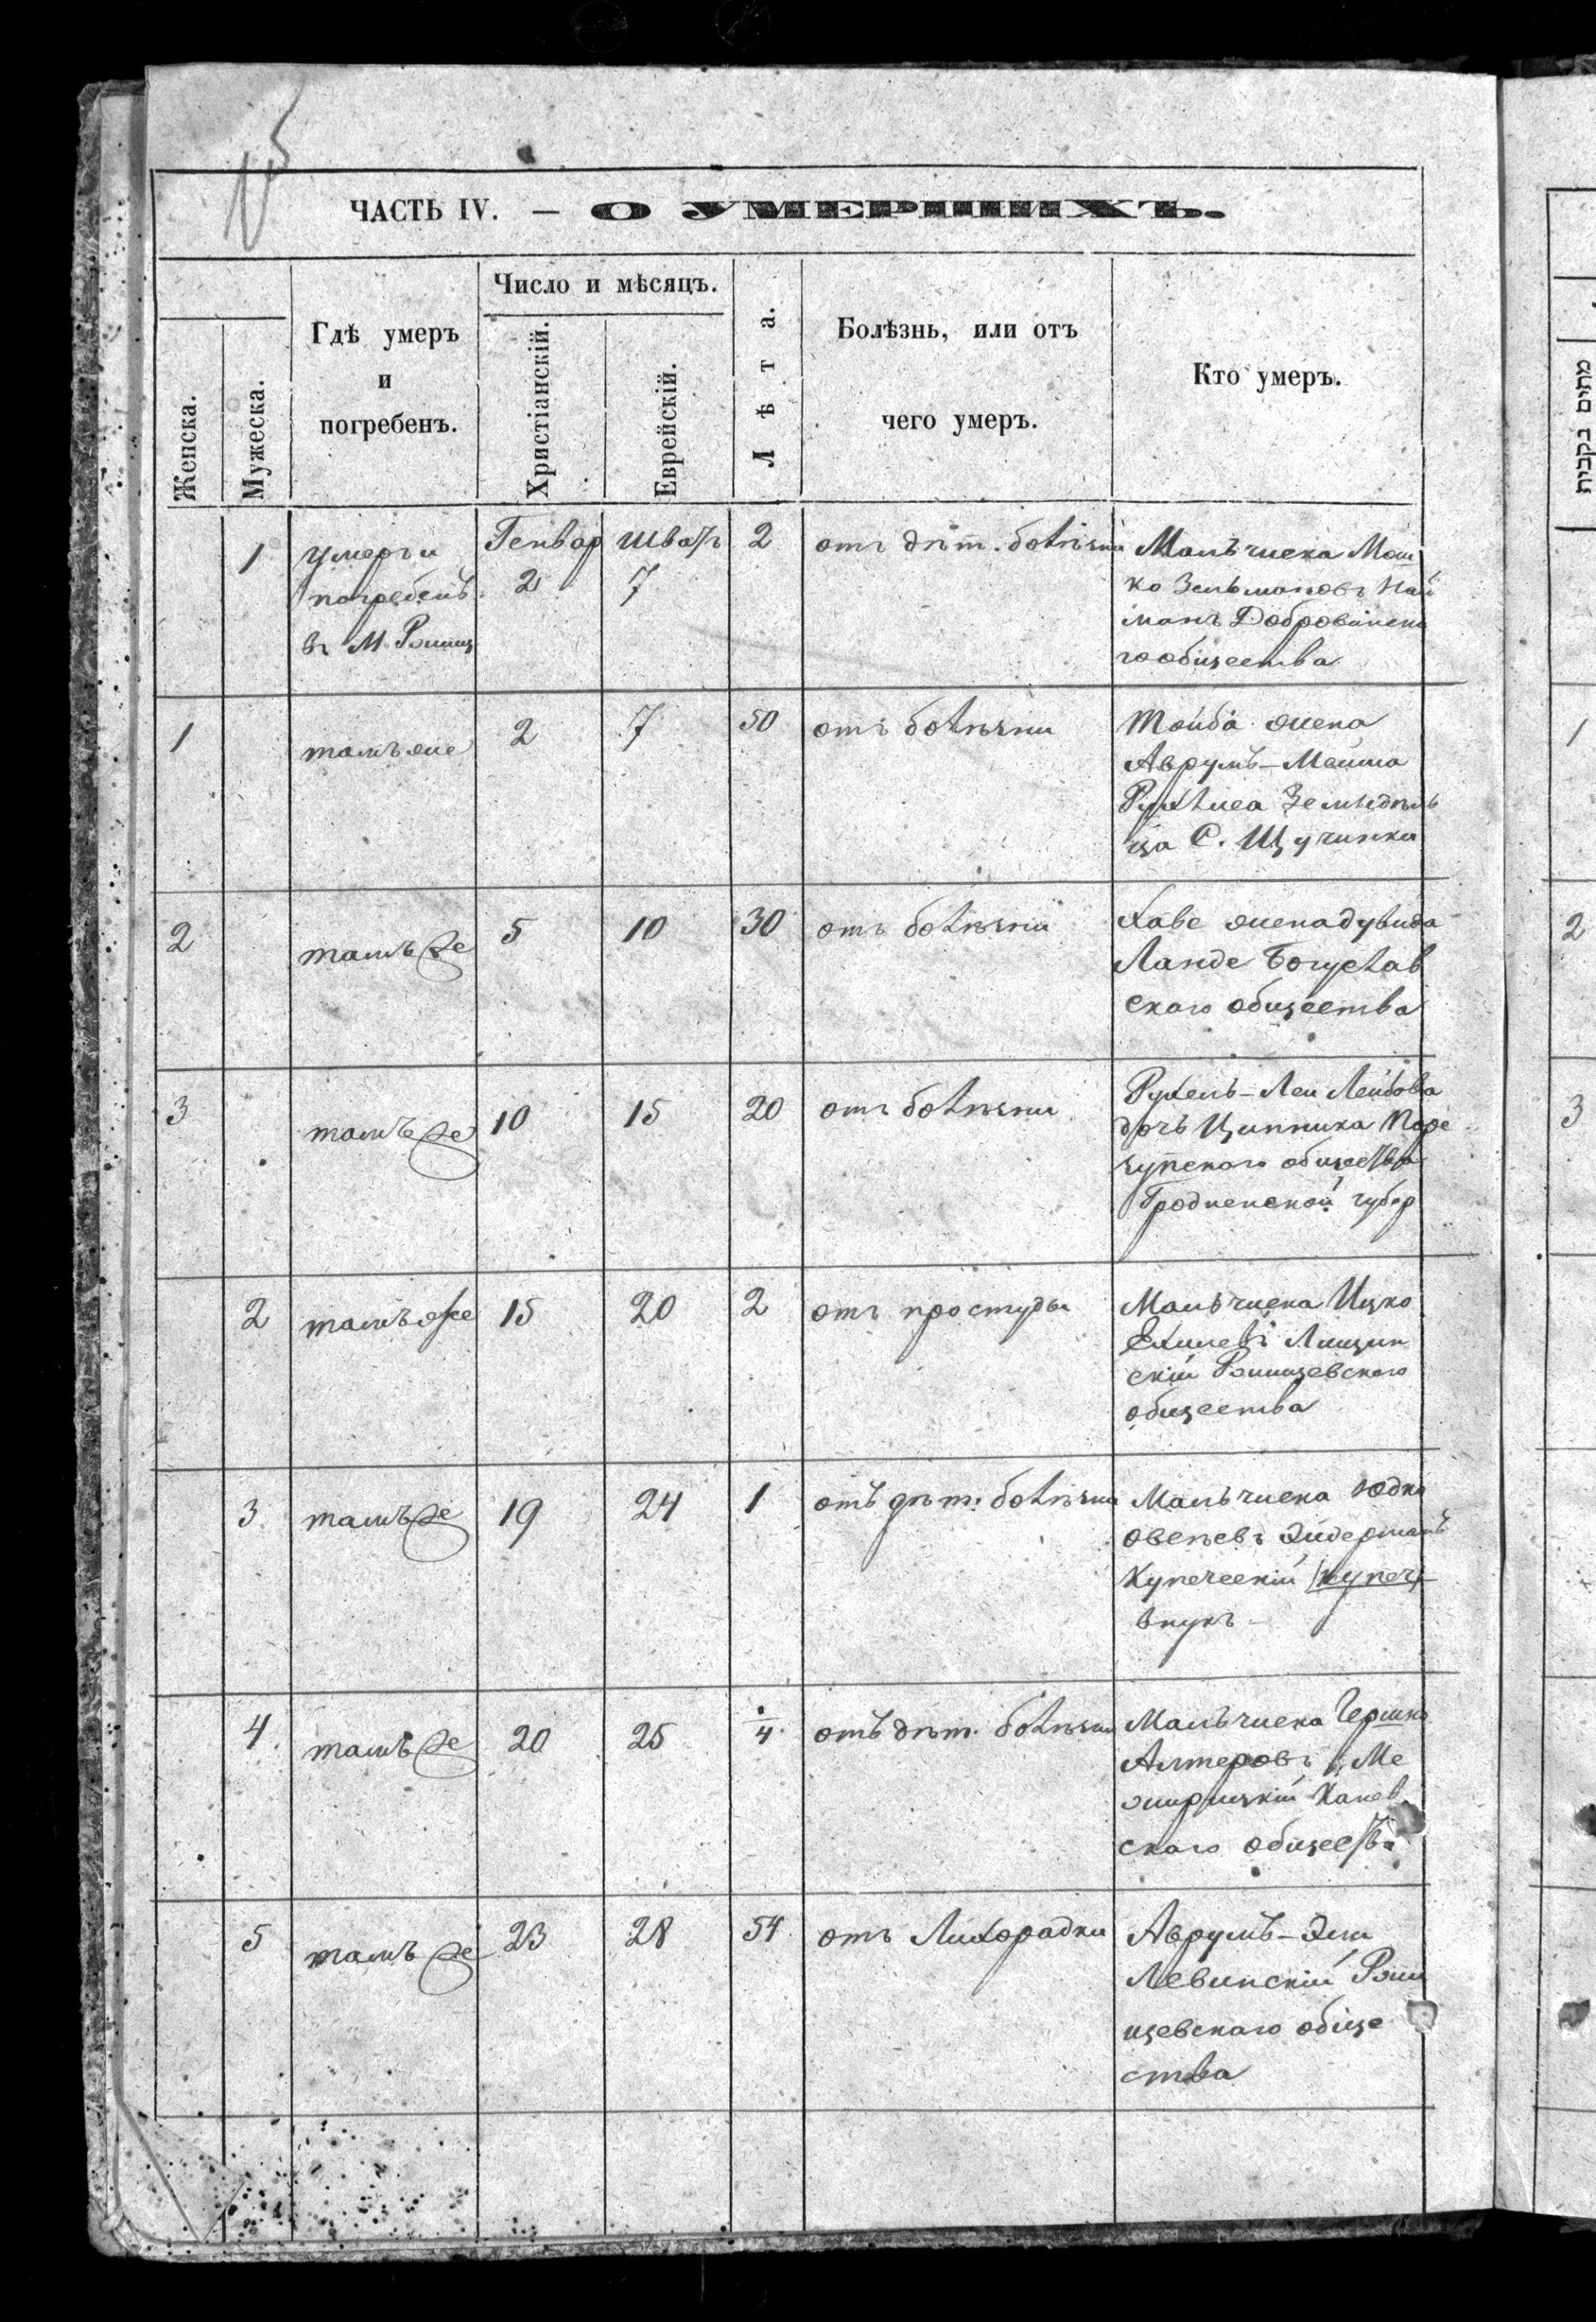 15
ЧАСТЬ IV. — О УМЕРШИХЪ.
Женска.
Мужеска.
Гдѣ умеръ
и
погребенъ.
Число и мѣсяцъ.
Христіанскій.
Еврейскій.
Лѣта.
Болѣзнь, или отъ
чего умеръ.
Кто умеръ.
1
умеръ и
погребенъ
въ М. Ржищ
Генвар
2
Шватъ
7
2
отъ дѣт. болѣзни
Мальчика Мош
ко Зельмановъ Най
манъ
гообщества
1
тамъ же
2
7
50
отъ болѣзни
Тойба жена
Аврумъ-Мойша
Земледѣль
ца С. Щучинки
2
тамъ же
5
10
30
отъ болѣзни
Хаве жена Дувида
Ланде Богуслав
скаго общества
3
тамъ же
10
15
20
отъ болѣзни
Рухель-Леи Лейбова
дочь Ципника
общества
Гродненской губер
2
тамъ же
15
20
2
отъ простуды
Мальчика Ицко
Лищин
скій Ржищевского
общества
3
тамъ же
19
24
1
отъ дѣт. болѣзни
Мальчика Юдка
Купеческій (купеч)
внукъ
4
тамъ же
20
25
4
отъ дѣт. болѣзни
Мальчика Гершко
Алтеровъ Ме
жирицкій Канев
скаго общества
5
тамъ же
23
28
54
отъ Лихорадки
Аврумъ-Эли
Левинскій Ржи
щевскаго обще
ства
מתים בקבית
1
2
3